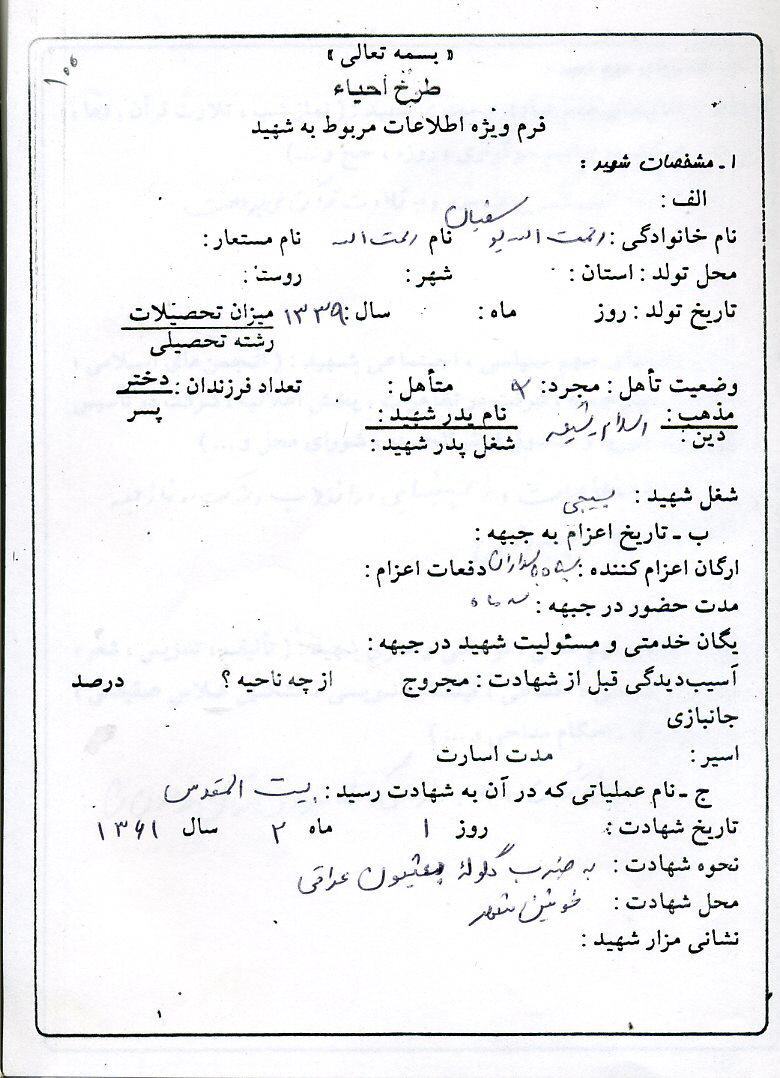 « بسمه تعالی »
طرح احیاء
فرم ویژه اطلاعات مربوط به شهید
۱ ـ مشخصات شهید :
الف :
سفیان
نام خانوادگی : رحمت اله پو نام رحمت اله نام مستعار :
محل تولد : استان : شهر : روستا :
تاریخ تولد : روز ماه : سال : ۱۳۳۹ میزان تحصیلات
رشته تحصیلی
وضعیت تأهل : مجرد : متأهل : تعداد فرزندان : دختر
پسر
مذهب : اسلام شیعه نام پدر شهید :
دین : شغل پدر شهید :
شغل شهید : بسیجی
ب ـ تاریخ اعزام به جبهه :
ارگان اعزام کننده : سپاه پاسداران دفعات اعزام :
مدت حضور در جبهه : سه ماه
یگان خدمتی و مسئولیت شهید در جبهه :
آسیب‌دیدگی قبل از شهادت : مجروح از چه ناحیه ؟ درصد
جانبازی
اسیر : مدت اسارت
ج ـ نام عملیاتی که در آن به شهادت رسید : بیت المقدس
تاریخ شهادت : روز ۱ ماه ۲ سال ۱۳۶۱
نحوه شهادت : به ضرب گلوله بعثیون عراقی
محل شهادت : خونین شهر
نشانی مزار شهید :